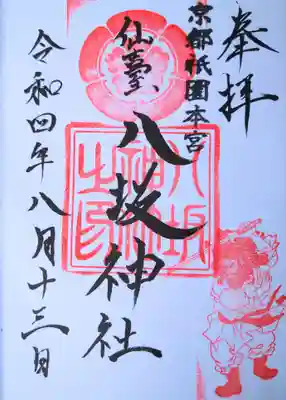 奉拝
京都祇園本宮
仙臺
八坂神社
八坂神社之印
令和四年八月十三日